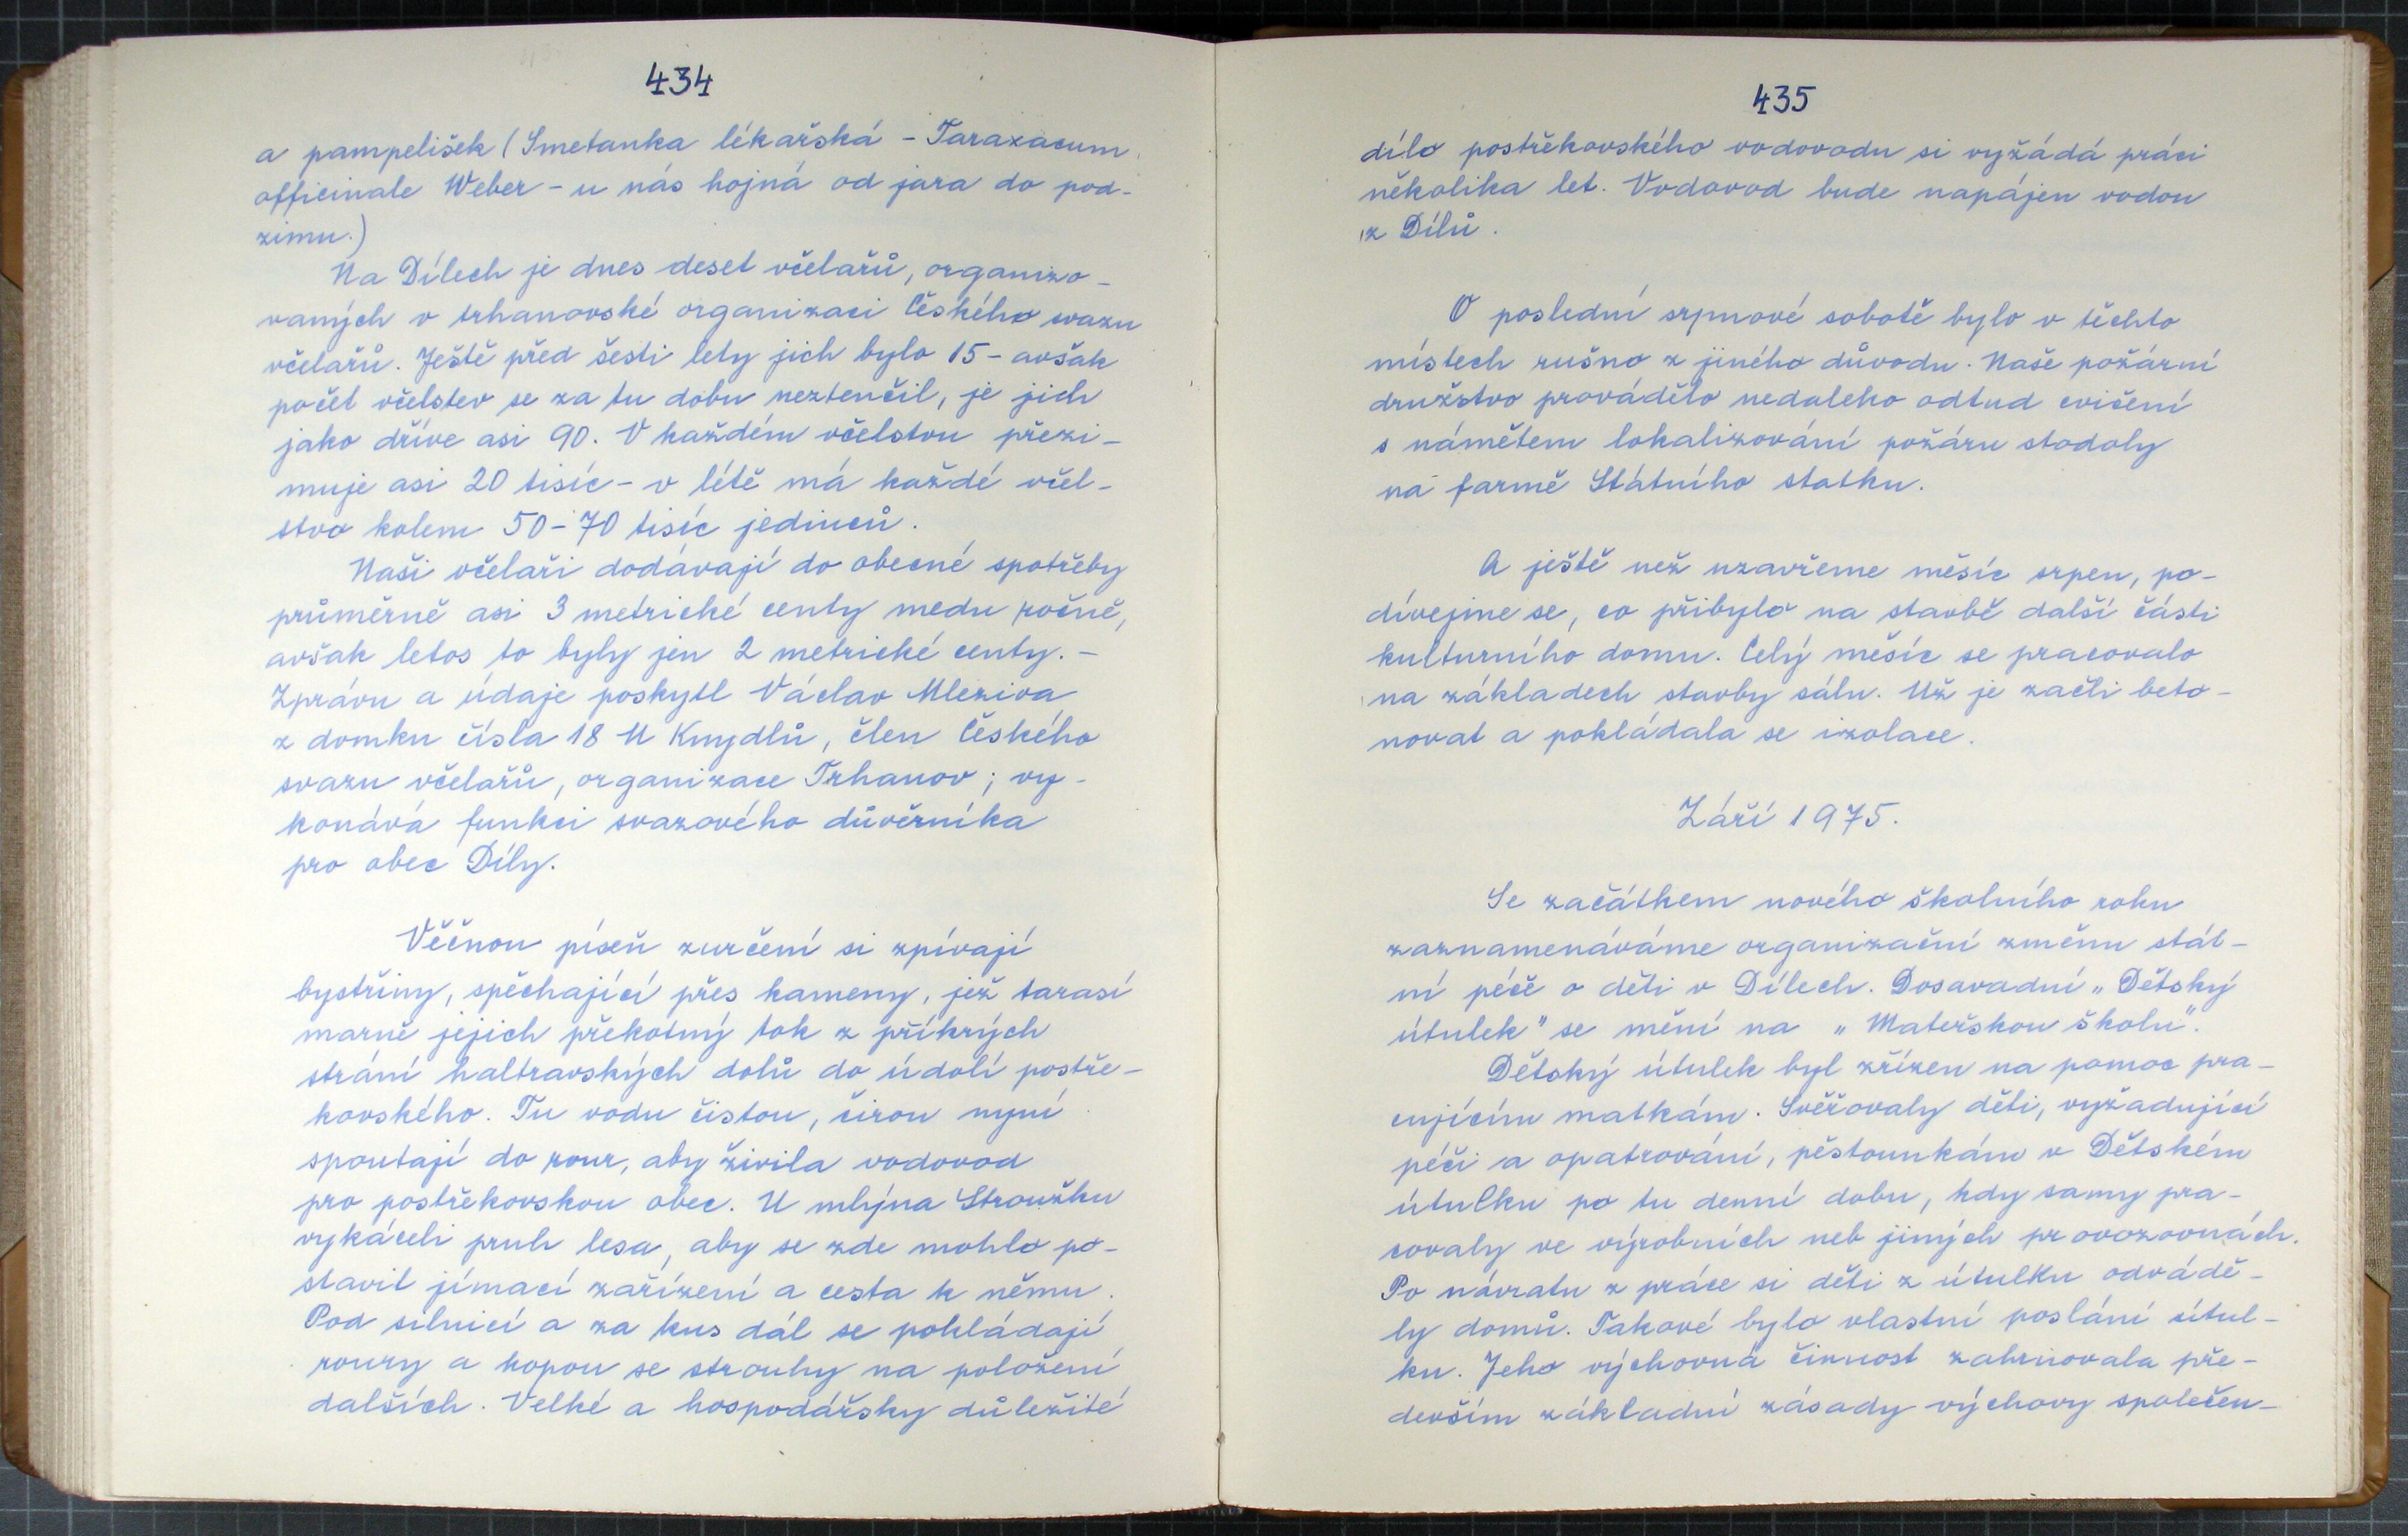 434
a pampelišek (Smetanka lékařská - Taraxacum
officinale Weber - u nás hojná od jara do pod-
zimu.)
Na Dílech je dnes deset včelařů, organizo-
vaných v trhanovské organizaci Českého svazu
včelařů. Ještě před šesti lety jich bylo 15 - avšak
počet včelstev se za tu dobu neztenčil, je jich
jako dříve asi 90. V každém včelstvu přezi-
muje asi 20 tisíc - v létě má každé včel-
stvo kolem 50-70 tisíc jedinců.
Naši včelaři dodávají do obecné spotřeby
průměrně asi 3 metrické centy medu ročně,
avšak letos to byly jen 2 metrické centy. -
Zprávu a údaje poskytl Václav Mleziva
z domku čísla 18 U Knydlů, člen Českého
svazu včelařů, organizace Trhanov; vy-
konává funkci svazového důvěrníka
pro obec Díly.
Věčnou píseň zurčení si zpívají
bystřiny, spěchající přes kameny, jež tarasí
marně jejich překotný tok z příkrých
strání haltravských dolů do údolí postře-
kovského. Tu vodu čistou, čirou nyní
spoutají do rour, aby živila vodovod
pro postřekovskou obec. U mlýna Stroužku
vykáceli pruh lesa, aby se zde mohlo po-
stavit jímací zařízení a cesta k němu.
Pod silnicí a za kus dál se pokládají
roury a kopou se strouhy na položení
dalších. Velké a hospodářsky důležité
435
dílo postřekovského vodovodu si vyžádá práci
několika let. Vodovod bude napájen vodou
z Dílů.
O poslední srpnové sobotě bylo v těchto
místech rušno z jiného důvodu. Naše požární
družstvo provádělo nedaleko odtud cvičení
s námětem lokalizování požáru stodoly
na farmě Státního statku.
A ještě než uzavřeme měsíc srpen, po-
dívejme se, co přibylo na stavbě další části
kulturního domu. Celý měsíc se pracovalo
na základech stavby sálu. Už je začli beto-
novat a pokládala se izolace.
Září 1975.
Se začátkem nového školního roku
zaznamenáváme organizační změnu stát-
ní péče o děti v Dílech. Dosavadní „Dětský
útulek" se mění na „Mateřskou školu".
Dětský útulek byl zřízen na pomoc pra-
cujícím matkám. Svěřovaly děti, vyžadující
péči a opatrování, pěstounkám v Dětském
útulku po tu denní dobu, kdy samy pra-
covaly ve výrobních neb jiných provozovnách.
Po návratu z práce si děti z útulku odvádě-
ly domů. Takové bylo vlastní poslání útul-
ku. Jeho výchovná činnost zahrnovala pře-
devším základní zásady výchovy společen-